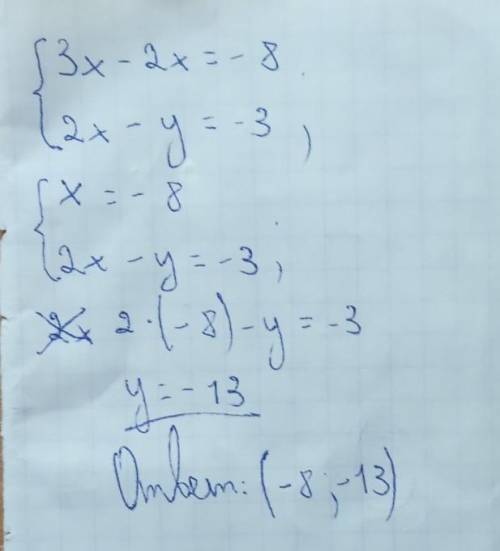 3x - 2x = - 8
2x - y = -3 ,
x = - 8
2x - y = -3 ;
2 · (-8) - y = -3
y = - 13
Ответ: (-8 ; -13)